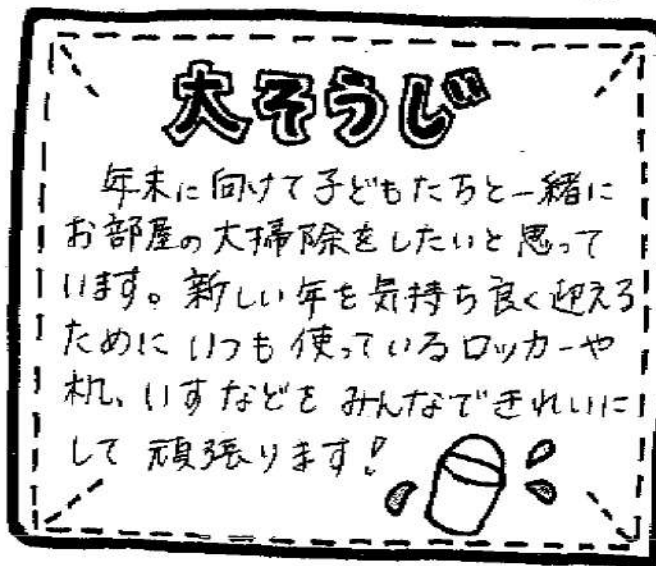 大そうじ
年末に向けて子どもたちと一緒に
お部屋の大掃除をしたいと思って
います。新しい年を気持ち良く迎える
ためにいつも使っているロッカーや
机、いすなどをみんなできれいに
して頑張ります!